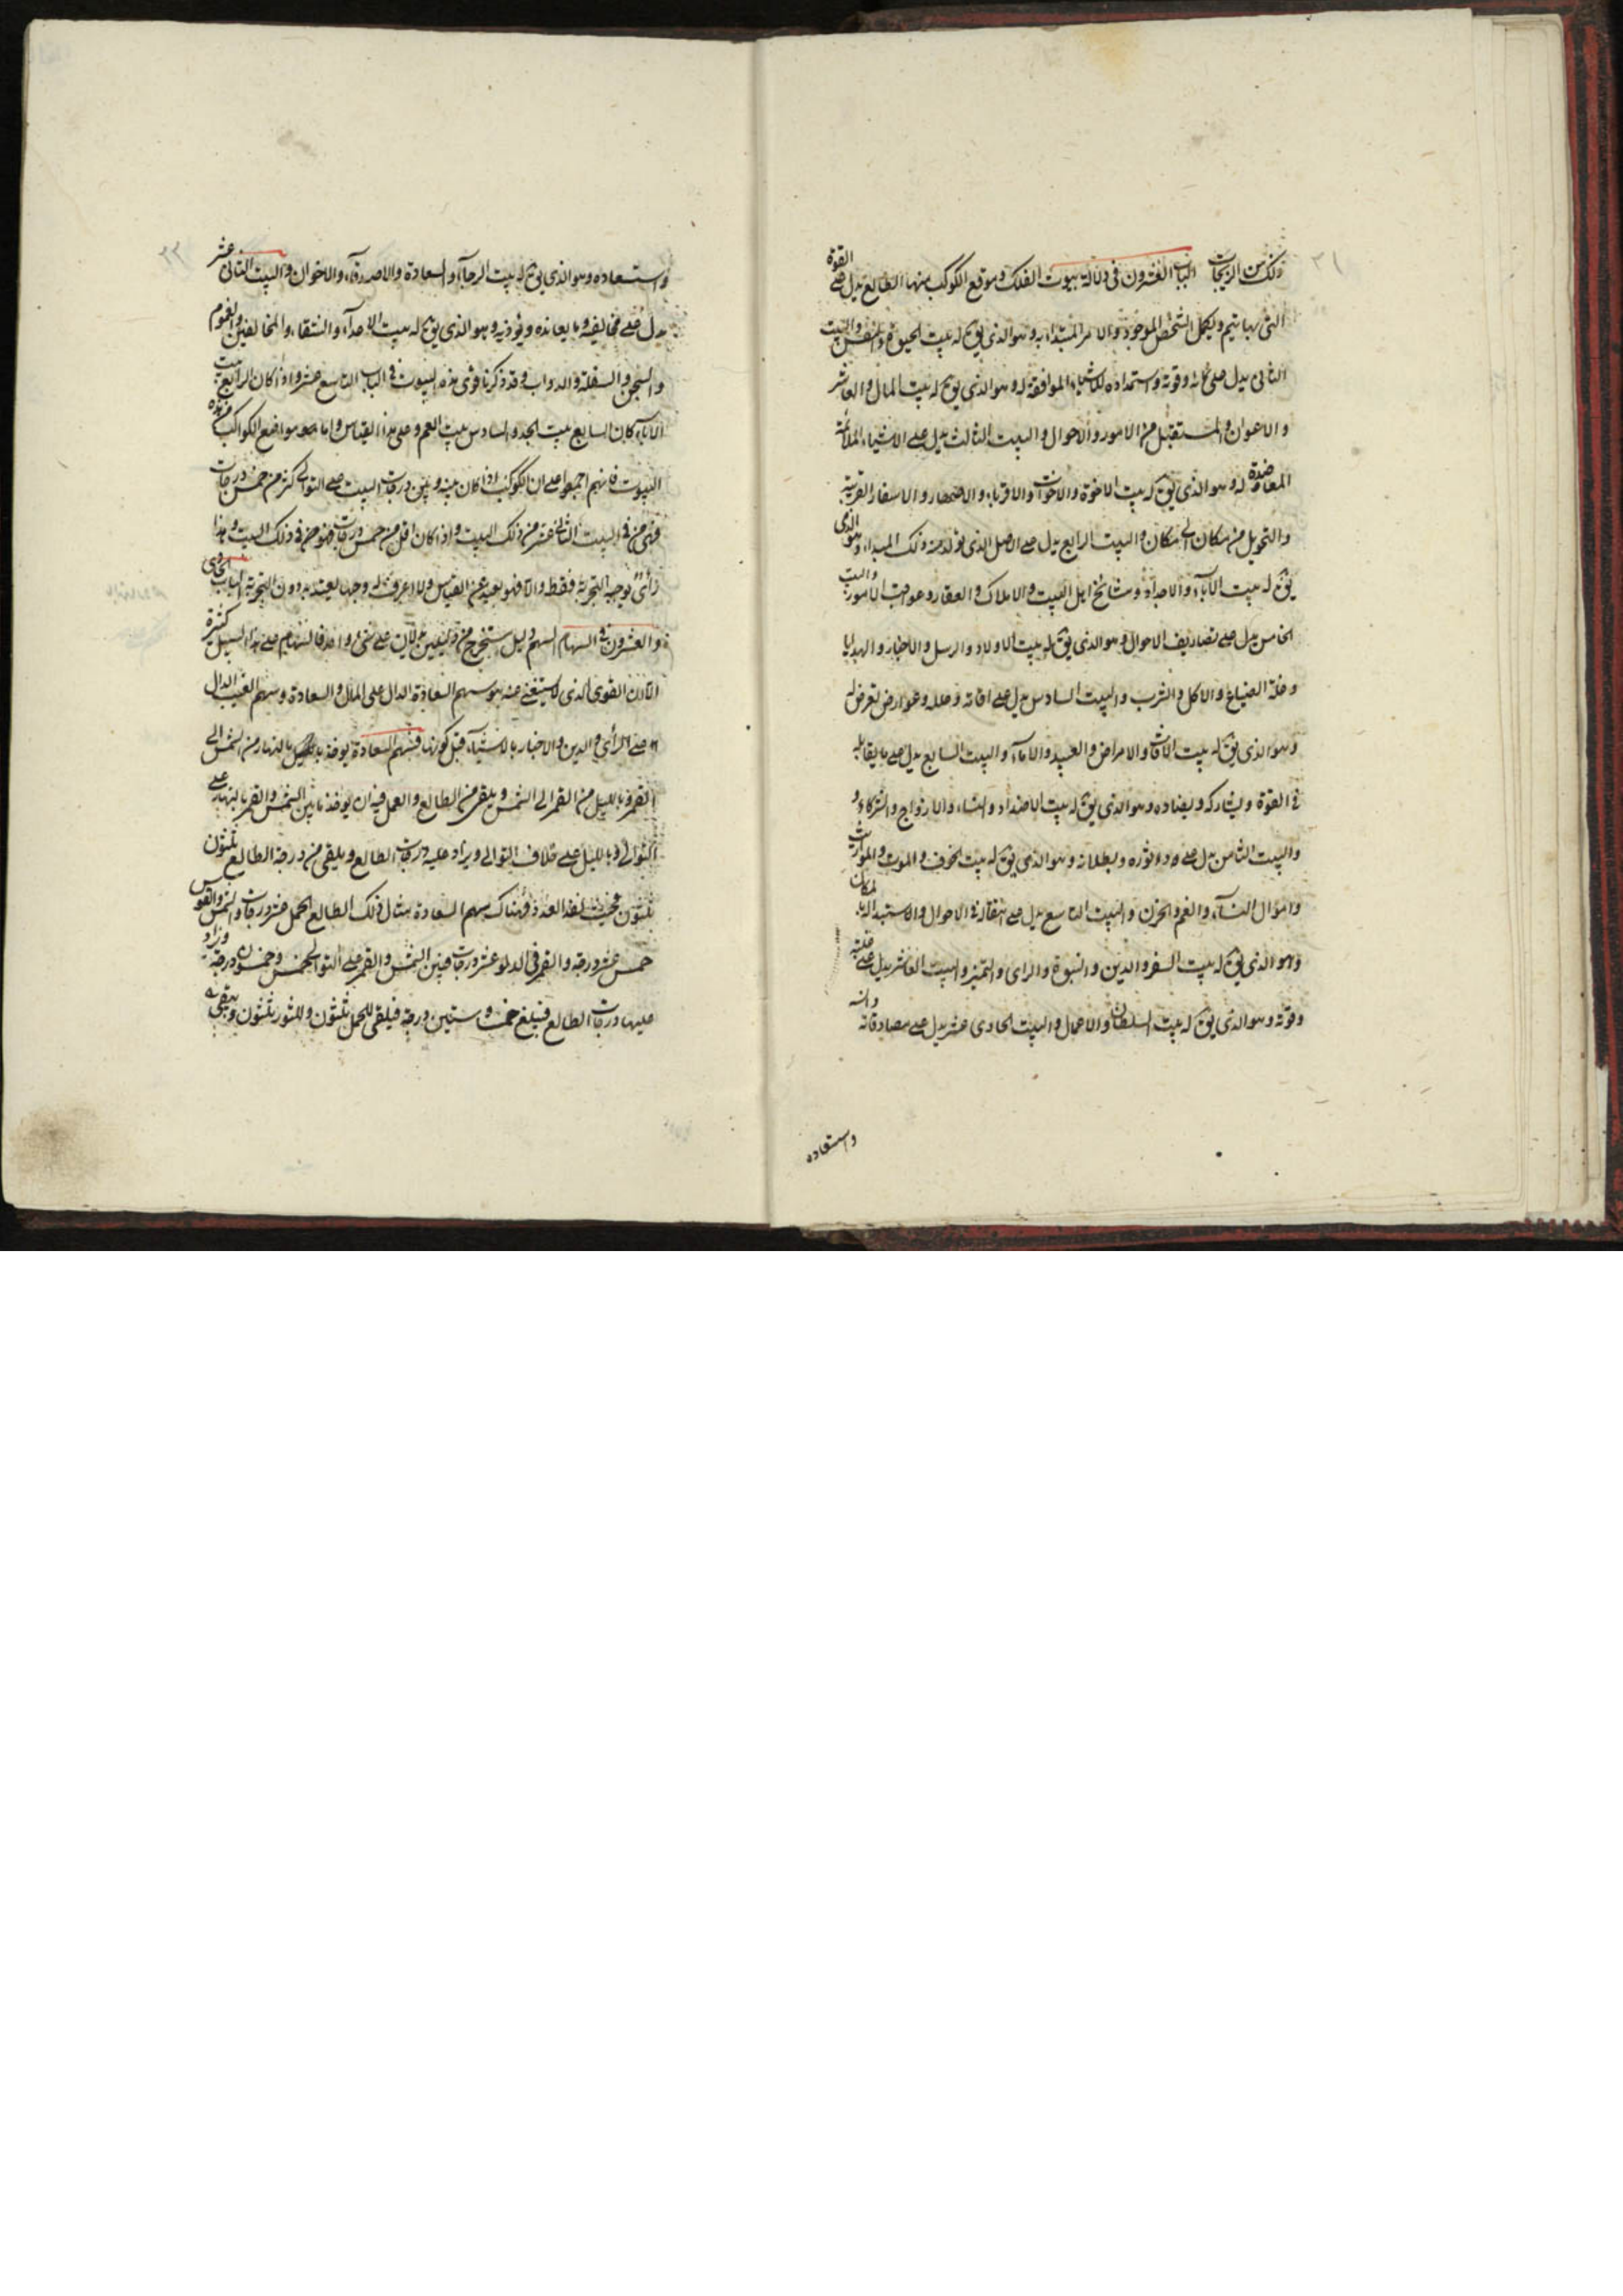 ٢١
ذلك من الزيجات الباب العشرون في دلالة بيوت الفلك وموقع الكوكب منها الطالع يدل على القوة
التي بها يتم ويكمل الشخص الموجود والامر المبتداء به وهو الذي يق له بيت الحيوة والنفس والبيت
الثاني يدل على وقوته واستمداده للاشياء الموافقة له وهو الذي يق له بيت المال والعاشر
والاعوان والمستقبل من الامور والاحوال والبيت الثالث يدل على الاشياء الملائمة
المعاضدة له وهو الذي يق له بيت الاخوة والاخوات والاقرباء والاصهار والاسفار القريبة
والتحويل من مكان الى مكان والبيت الرابع يدل على الاصل الذي تولد منه ذلك المبداء وهو الذي
يق له بيت الآباء والاجداد ومشائخ اهل البيت والاملاك والعقار وعواقب الامور والبيت
الخامس يدل على تصاريف الاحوال وهو الذي يق له بيت الاولاد والرسل والاخبار والهدايا
وغلة الضياع والاكل والشرب والبيت السادس يدل على آفاته وعلله وعوارض تعرض له
وهو الذي يق له بيت الآفات والامراض والعبيد والاماء والبيت السابع يدل على ما يقابله
في القوة ويشاركه ويضاده وهو الذي يق له بيت الاضداد والنساء والازواج والشركاء و
والبيت الثامن يدل على وبطلانه وهو الذي يق له بيت الخوف والموت والمواريث
واموال النساء والغم والحزن والبيت التاسع يدل على انتقاله في الاحوال والاستبدال بالمكان
وهو الذي يق له بيت السفر والدين والنبوة والراى والتميز والبيت العاشر يدل على غلبته
وقوته وهو الذي يق له بيت السلطان والاعمال والبيت الحادي عشر يدل على مصادقاته
واستعاده
٢٢
واستعاده وهو الذي يق له بيت الرجاء والسعادة والاصدقاء والاخوان والبيت الثاني عشر
يدل على مخالفيه وما يعانده ويؤذيه وهو الذي يق له بيت الاعداء والشقاء والمخالفين والغموم
والسجن والسفلة والدواب وقد ذكرنا قوى هذه البيوت في الباب التاسع عشر واذا كان الرابع بيت
الآباء كان السابع بيت الجد والسادس بيت العم وعلى هذا القياس واما مواضع الكواكب من هذه
البيوت فانهم اجمعوا على ان الكوكب اذا كان بينه وبين درجات البيت على التوالي اكثر من خمس درجات
فهي من في البيت الثاني عشر من ذلك البيت واذا كان اقل من خمس درجات فهو من في ذلك البيت وهذا
رأى يوجبه التجربة فقط والا فهو بعيد عن القياس ولا اعرف له وجها يعتد به دون التجربة الباب الحادي
والعشرون في السهام السهم دليل يستخرج من دليلين يدلان على شيء واحد فالسهام على هذا السبيل كثيرة
الا ان القوى الذي لا يستغنى عنه هو سهم السعادة الدال على المال والسعادة وسهم الغيب الدال
على الرأي والدين والاخبار بالاشياء قبل كونها فسهم السعادة يؤخذ بالنهار من الشمس الى
القمر وبالليل من القمر الى الشمس ويلقى من الطالع والعمل فيه ان يؤخذ ما بين الشمس والقمر بالنهار على
التوالي وبالليل على خلاف التوالي ويزاد عليه درجات الطالع ويلقى من درجة الطالع ثلثون
ثلثون فحيث نفذ العدد فهناك سهم السعادة مثال ذلك الطالع الحمل عشر درجات والشمس والقوس
خمس عشر درجة والقمر في الدلو عشر درجات فبين الشمس والقمر على التوالي خمس وخمسون درجة وزاد
عليها درجات الطالع فيبلغ خمسة وستين درجة فيلقى للحمل ثلثون وللثور ثلثون ويبقى